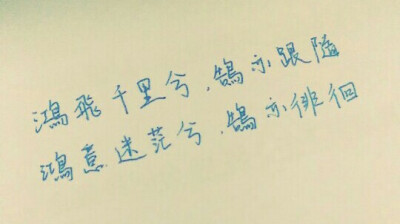 鴻飛千里兮，鵠亦跟隨
鴻意迷茫兮，鵠亦徘徊